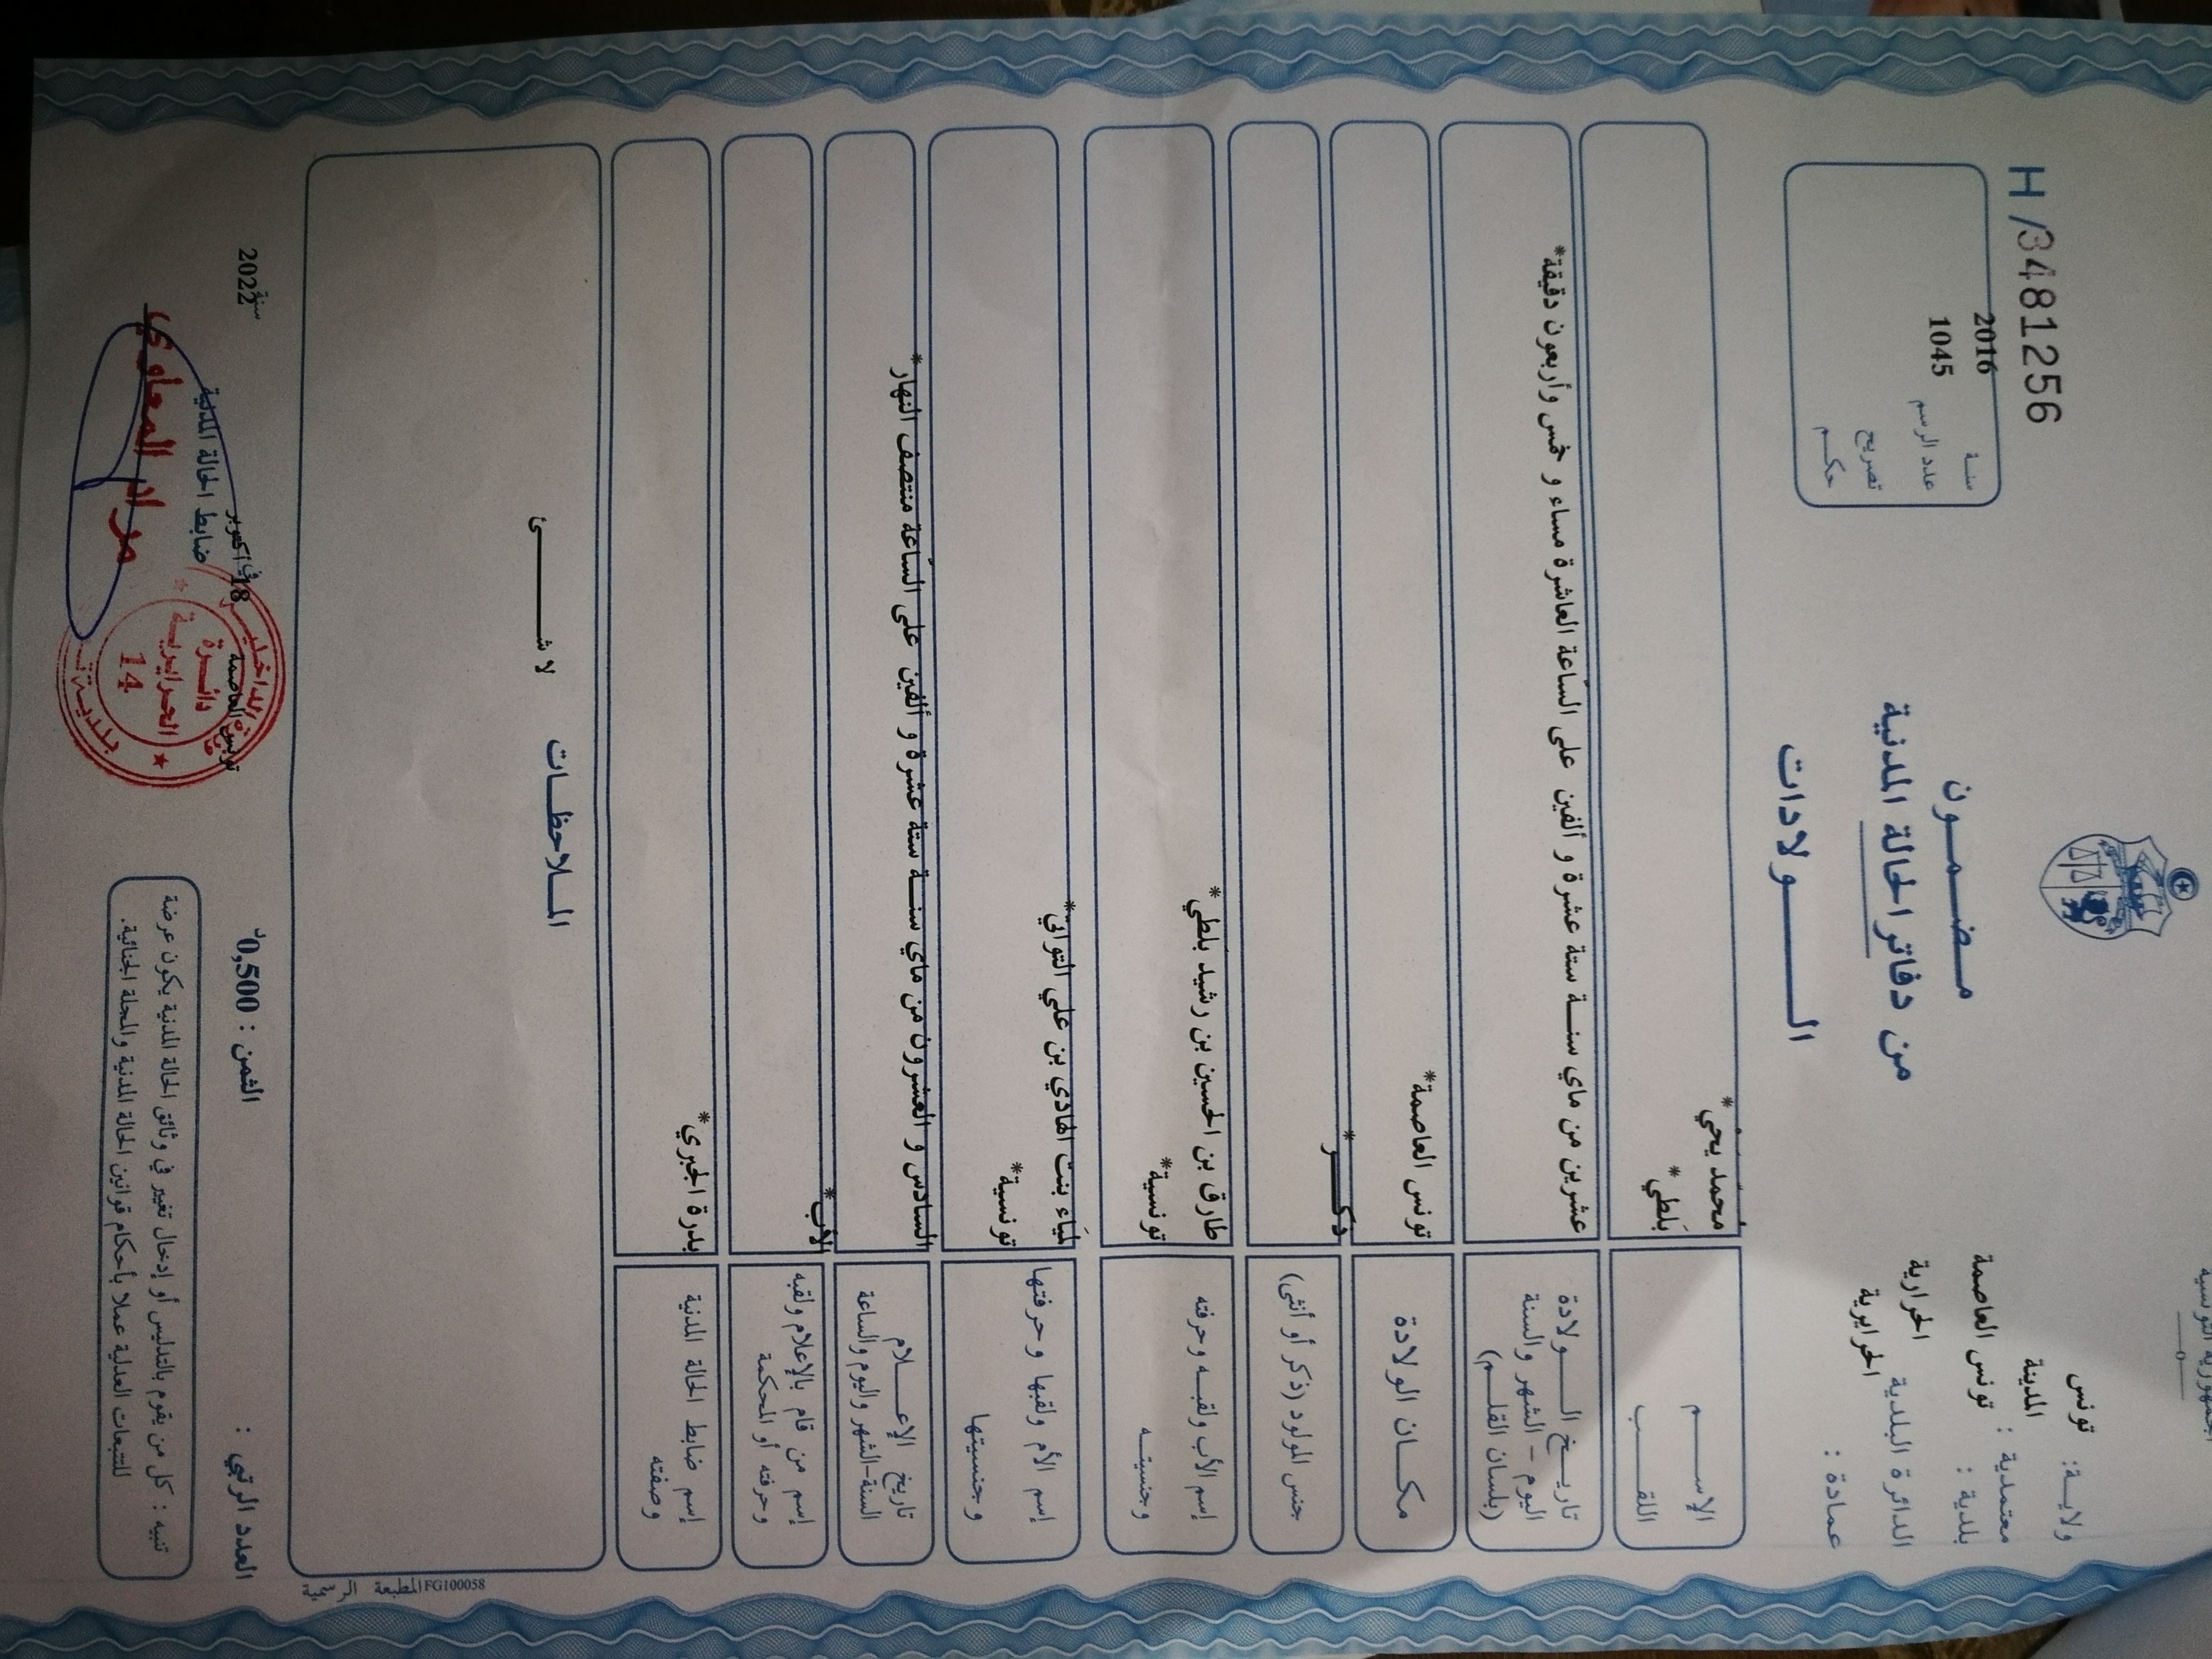 الجمهورية التونسية
ولايــة: تونس
معتمدية : المدينة
بلدية : تونس العاصمة
الدائرة البلدية الحرارية
عمادة : الحرايرية
H/3481256
سنة 2016
عدد الرسم 1045
تصريح
حكم
مضمون
من دفاتر الحالة المدنية
الولادات
الإسم محمد يحي*
اللقب بلطي*
تاريخ الولادة
اليوم - الشهر والسنة
(بلسان القلم)
عشرين من ماي سنة ستة عشرة و ألفين على الساعة العاشرة مساء و خمس وأربعون دقيقة*
مكان الولادة تونس العاصمة*
جنس المولود (ذكر أو أنثى) ذكر*
إسم الأب ولقبه وحرفته طارق بن الحسين بن رشيد بلطي*
وجنسيته تونسية*
إسم الأم ولقبها وحرفتها لمياء بنت الهادي بن علي التواتي*
وجنسيتها تونسية*
تاريخ الإعلام
السنة-الشهر واليوم والساعة
السادس و العشرون من ماي سنة ستة عشرة و ألفين على الساعة منتصف النهار*
إسم من قام بالإعلام ولقبه
وحرفته أو المحكمة
الأب*
إسم ضابط الحالة المدنية
وصفته
بدرة الجبري*
الملاحظات
لا شئ
المطبعة الرسمية FG100058
العدد الرتبي :
الثمن : 0,500د
تونس العاصمة في 18 أكتوبر سنة 2022
ضابط الحالة المدنية
مراد المعاوي
دائرة
الحرايرية
14
تنبيه : كل من يقوم بالتدليس أو إدخال تغيير في وثائق الحالة المدنية يكون عرضة
للتتبعات العدلية عملا بأحكام قوانين الحالة المدنية والمجلة الجنائية.